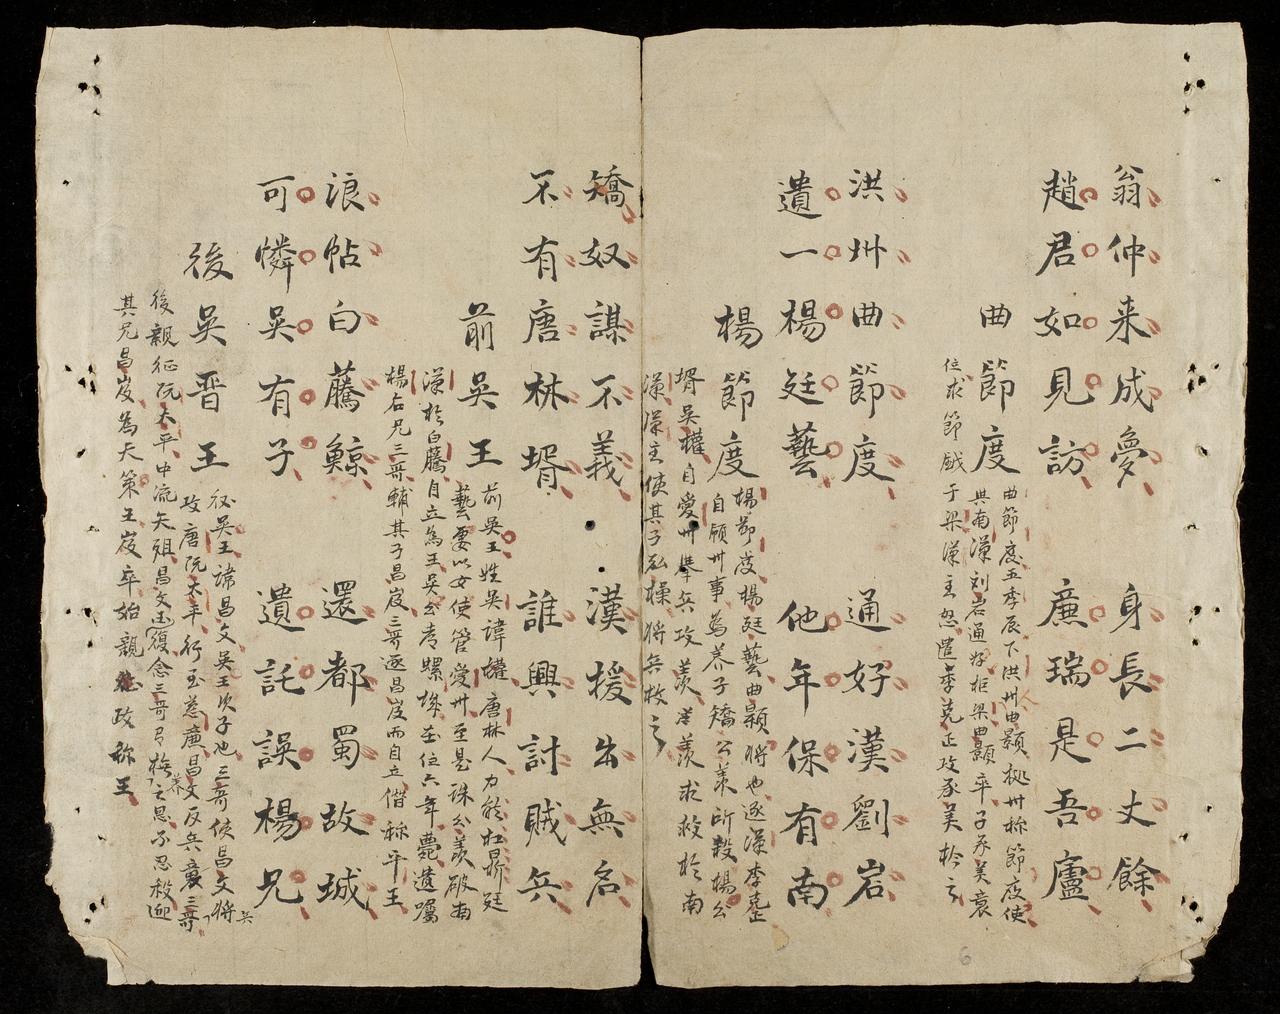 翁仲来成夢 身長二丈餘
趙君如見訪 廉瑞是吾廬
曲節度
曲節度五季辰下洪州曲顥㨿卅称節度使
共南漢刘岩通好拒梁曲顥卒子承美襄
位求節鉞于梁漢主怒遣李克正攻承美柃之
洪卅曲節度 通好漢劉岩
遺一楊廷藝 他年保有南
楊節度
楊節度楊廷藝曲顥將也逐漢李克正
自領卅事為养子矯公羨所殺楊公
壻吳權自愛卅舉兵攻羨羨求救於南
漢漢主使其子弘操將兵救之
矯奴謀不義 漢援出無名
不有唐林壻 誰興討賊兵
前吳王
前吳王姓吳諱權唐林人力能扛鼎廷
藝妻以女使管愛卅至是誅公羨破南
漢於白藤自立為王吳公考螺城在位六年薨遺嘱
楊后兄三哥輔其子昌岌三哥逐昌岌而自立僭称平王
浪帖白騰鯨 還都蜀故城
可憐吳有子 遺託誤楊兄
後吳晋王
後吳王諱昌文吳王次子也三哥使昌文將兵
攻唐阮太平行至慈廉昌文反兵襄三哥
後親征阮太平中流矢殂昌文復念三哥有撫养之恩不忍殺迎
其兄昌岌為天策王岌卒始親政称王